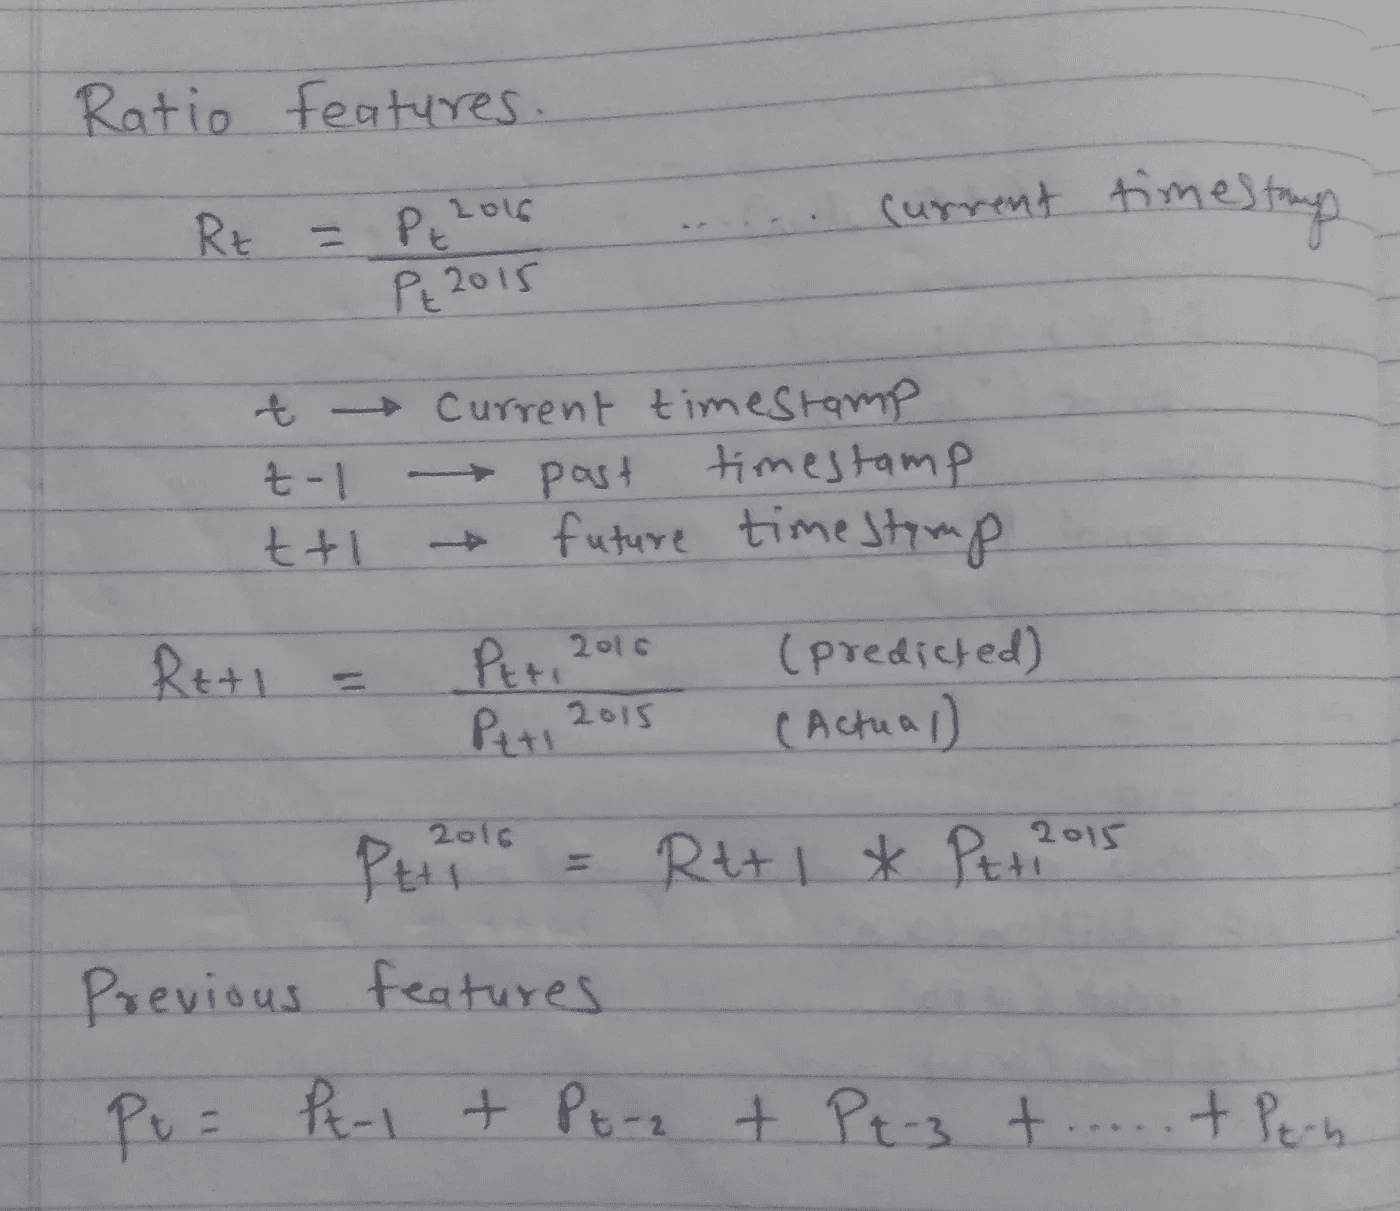 Ratio features.
Rt = Pt 2016 ...... current timestamp
Pt 2015
t → current timestamp
t-1 → past timestamp
t+1 → future timestamp
Rt+1 = Pt+1 2016 (predicted)
Pt+1 2015 (Actual)
Pt+1 2016 = Rt+1 * Pt+1 2015
Previous features
Pt = Pt-1 + Pt-2 + Pt-3 + ..... + Pt-n